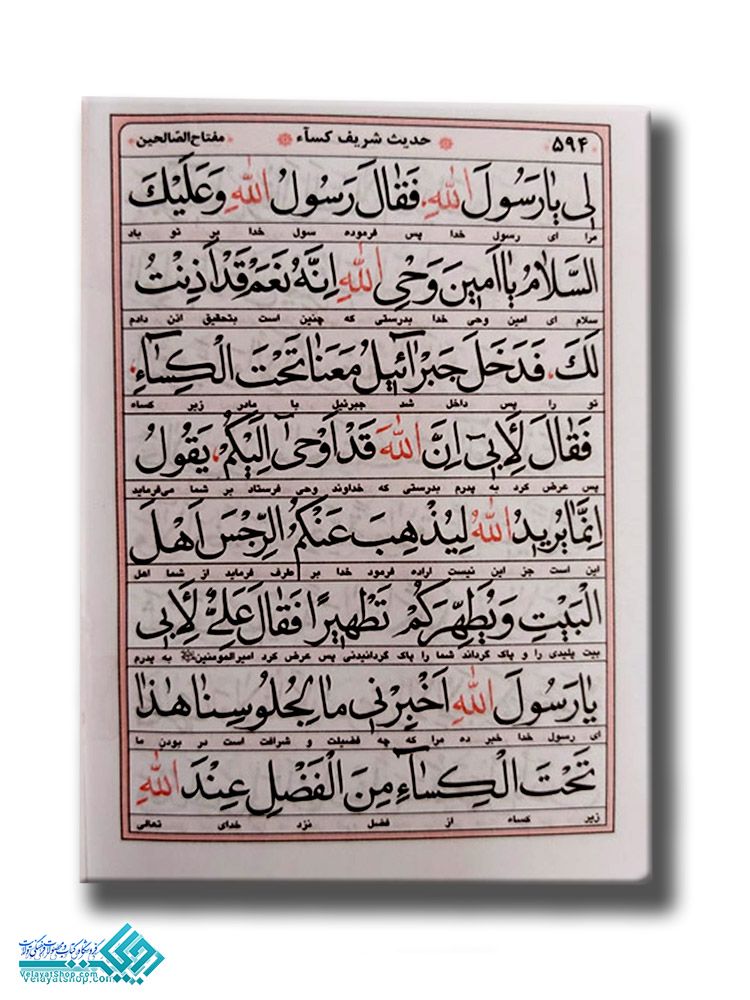 ۵۹۴ حدیث شریف کسآء مفتاح الصّالحین
لِی یٰا رَسُولَ اللّٰهِ. فَقٰالَ رَسُولُ اللّٰهِ وَعَلَیْكَ
مرا ای رسول خدا پس فرموده سول خدا بر تو باد
السَّلٰامُ یٰا اَمِینَ وَحْیِ اللّٰهِ اِنَّهُ نَعَمْ قَدْ اَذِنْتُ
سلام ای امین وحی خدا بدرستی که چنین است بتحقیق اذن دادم
لَكَ. فَدَخَلَ جَبْرٰآئِیلُ مَعَنٰا تَحْتَ الْكِسٰآءِ.
تو را پس داخل شد جبرئیل با مادر زیر کساء
فَقٰالَ لِأَبِی اِنَّ اللّٰهَ قَدْ اَوْحیٰٓ اِلَیْكُمْ، یَقُولُ
پس عرض کرد به پدرم بدرستی که خداوند وحی فرستاد بر شما می‌فرماید
اِنَّمٰا یُرِیدُ اللّٰهُ لِیُذْهِبَ عَنْكُمُ الرِّجْسَ اَهْلَ
این است جز این نیست اراده فرمود خدا بر طرف فرماید از شما اهل
الْبَیْتِ وَ یُطَهِّرَكُمْ تَطْهِیرًا فَقٰالَ عَلِیٌّ لِأَبِی
بیت پلیدی را و پاک گرداند شما را پاک گردانیدنی پس عرض کرد امیرالمومنین به پدرم
یٰا رَسُولَ اللّٰهِ اَخْبِرْنِی مٰا لِجُلُوسِنٰا هٰذٰا
ای رسول خدا خبر ده مرا که چه فضیلت و شرافت است در بودن ما
تَحْتَ الْكِسٰآءِ مِنَ الْفَضْلِ عِنْدَ اللّٰهِ
زیر کساء از فضل نزد خدای تعالی
فروشگاه کتاب و محصولات فرهنگی ولایت
VelayatShop.com
Velayatshop.com